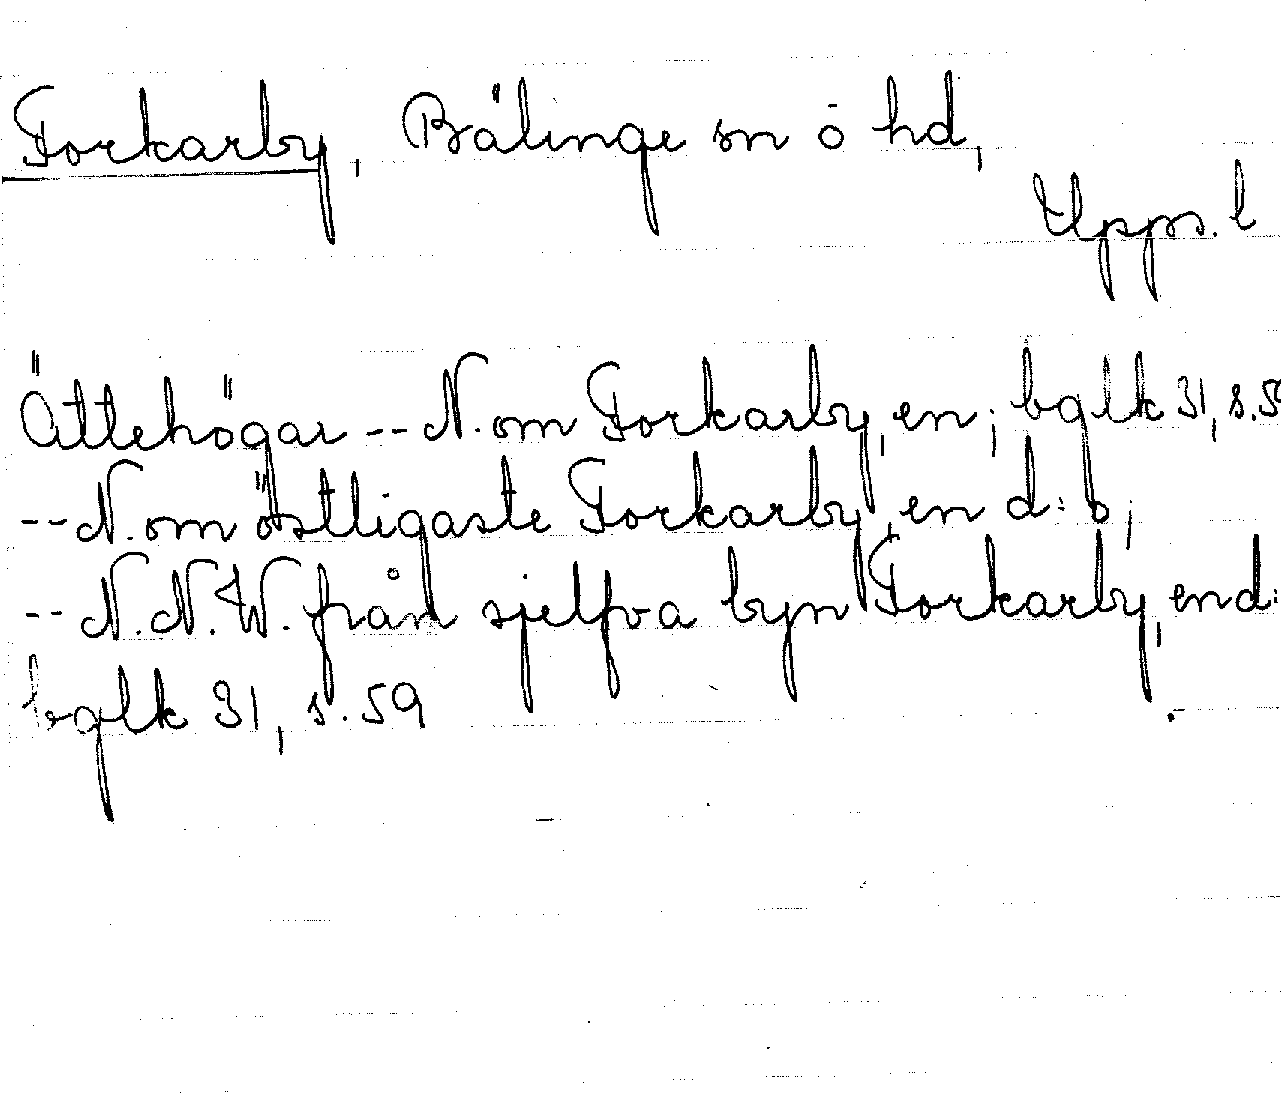 Forkarby, Bälinge sn o hd,
Upps. l
Ättehögar -- N. om Forkarby, en; bglk 31, s. 5
-- N. om östligaste Forkarby, en d:o;
-- N. N. W. från sjelfva byn Forkarby, en d:
bglk 31, s. 59